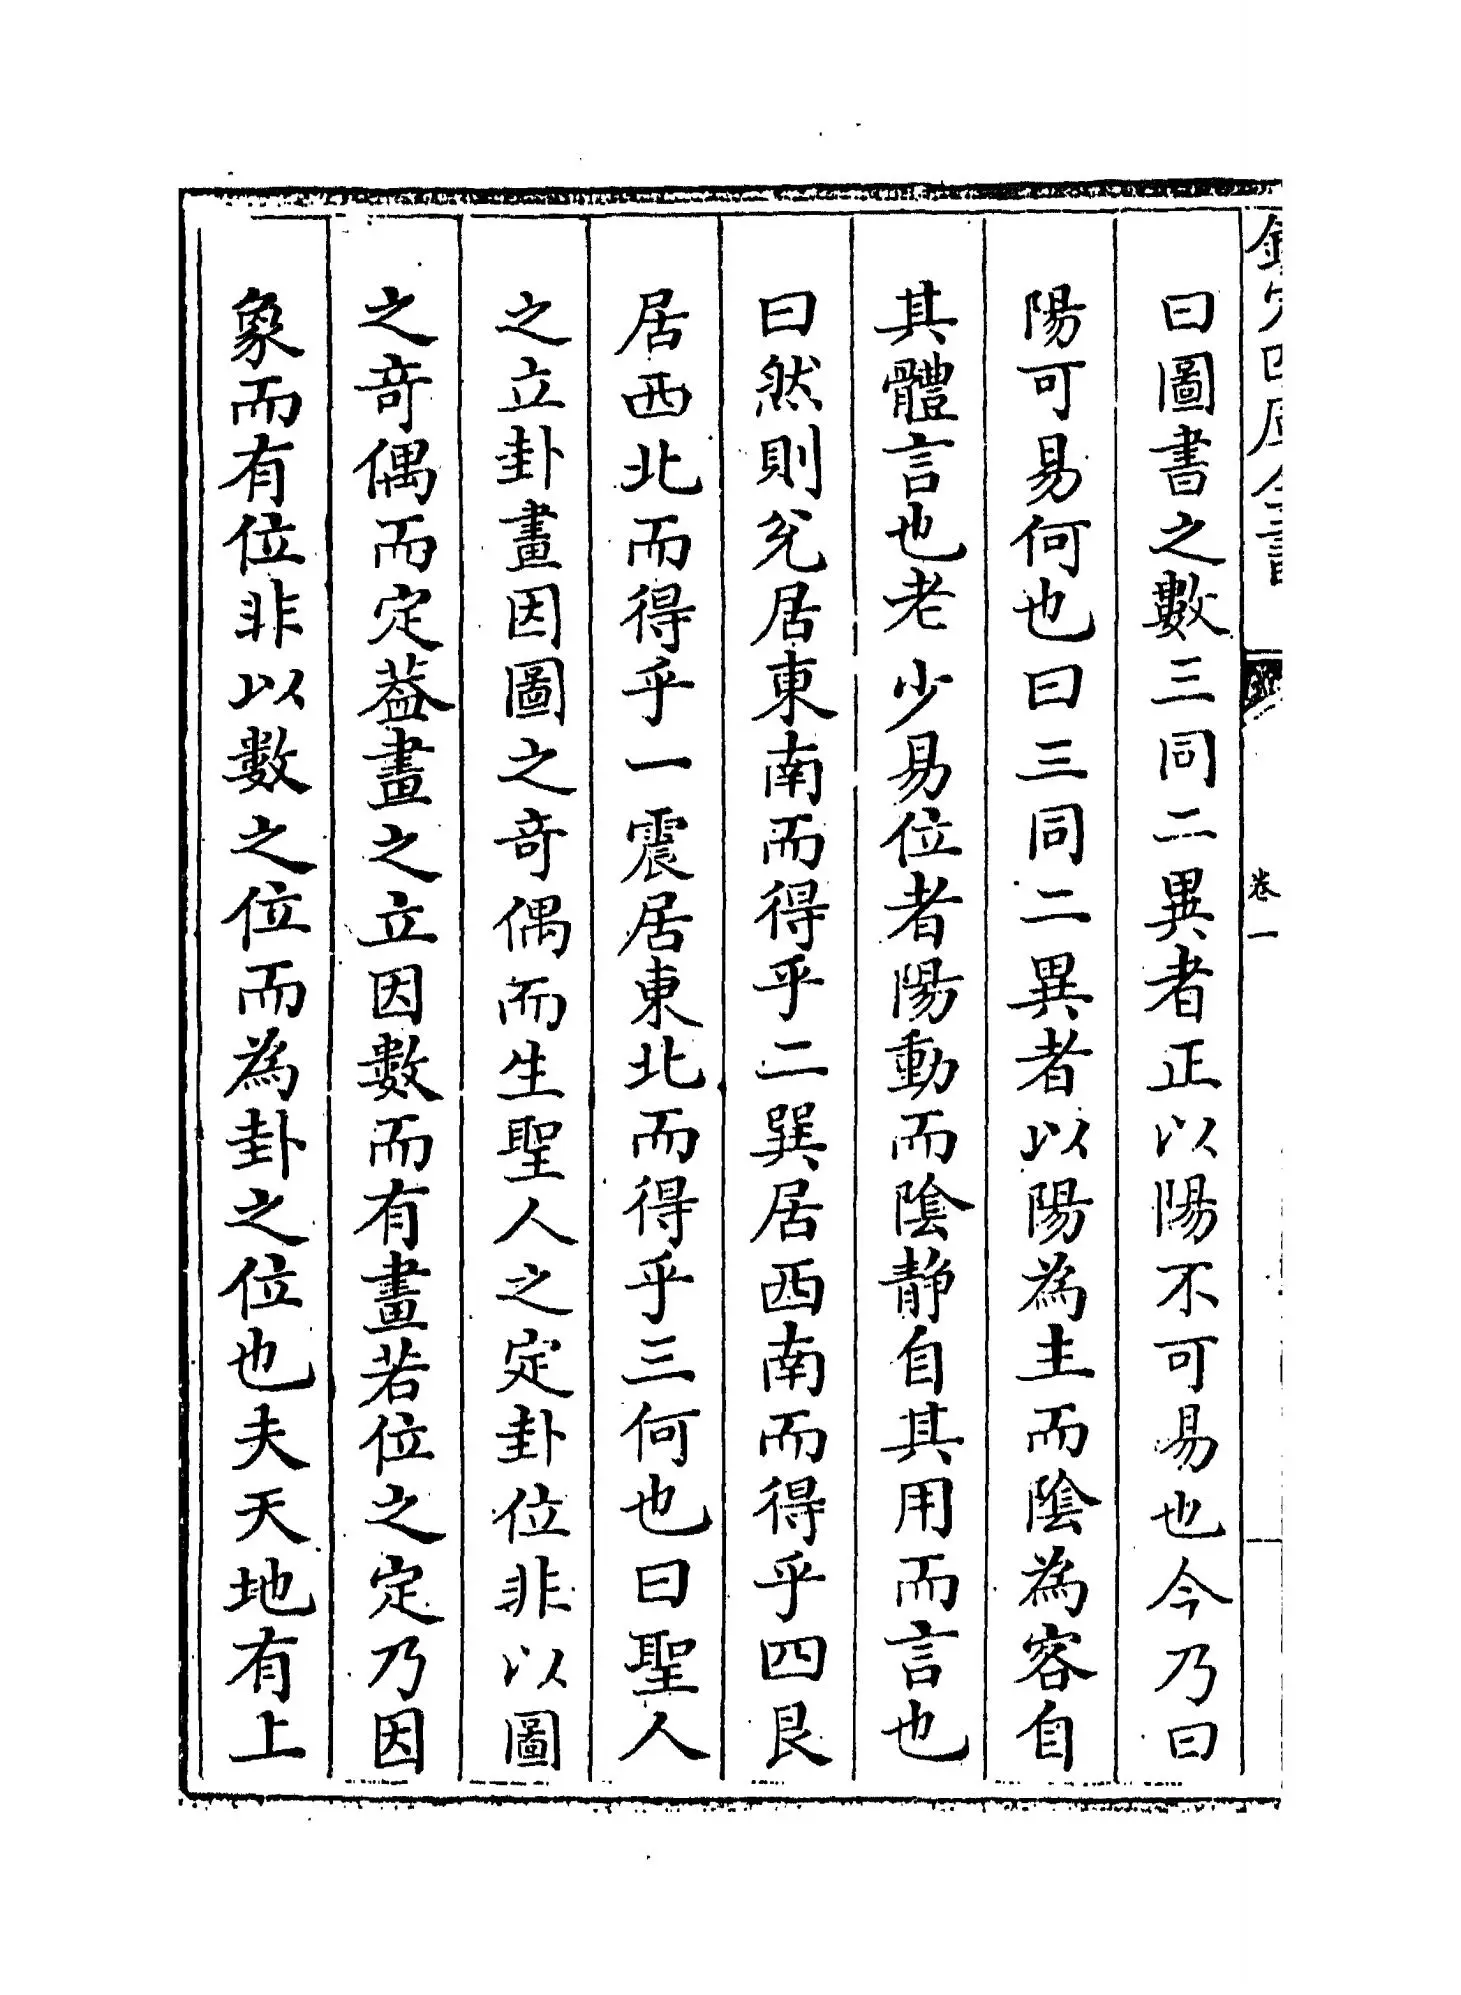 欽定四庫全書
卷一
曰圖書之數三同二異者正以陽不可易也今乃曰
陽可易何也曰三同二異者以陽為主而陰為客自
其體言也老少易位者陽動而陰静自其用而言也
曰然則兊居東南而得乎二巽居西南而得乎四艮
居西北而得乎一震居東北而得乎三何也曰聖人
之立卦畫因圖之竒偶而生聖人之定卦位非以圖
之竒偶而定葢畫之立因數而有畫若位之定乃因
象而有位非以數之位而為卦之位也夫天地有上